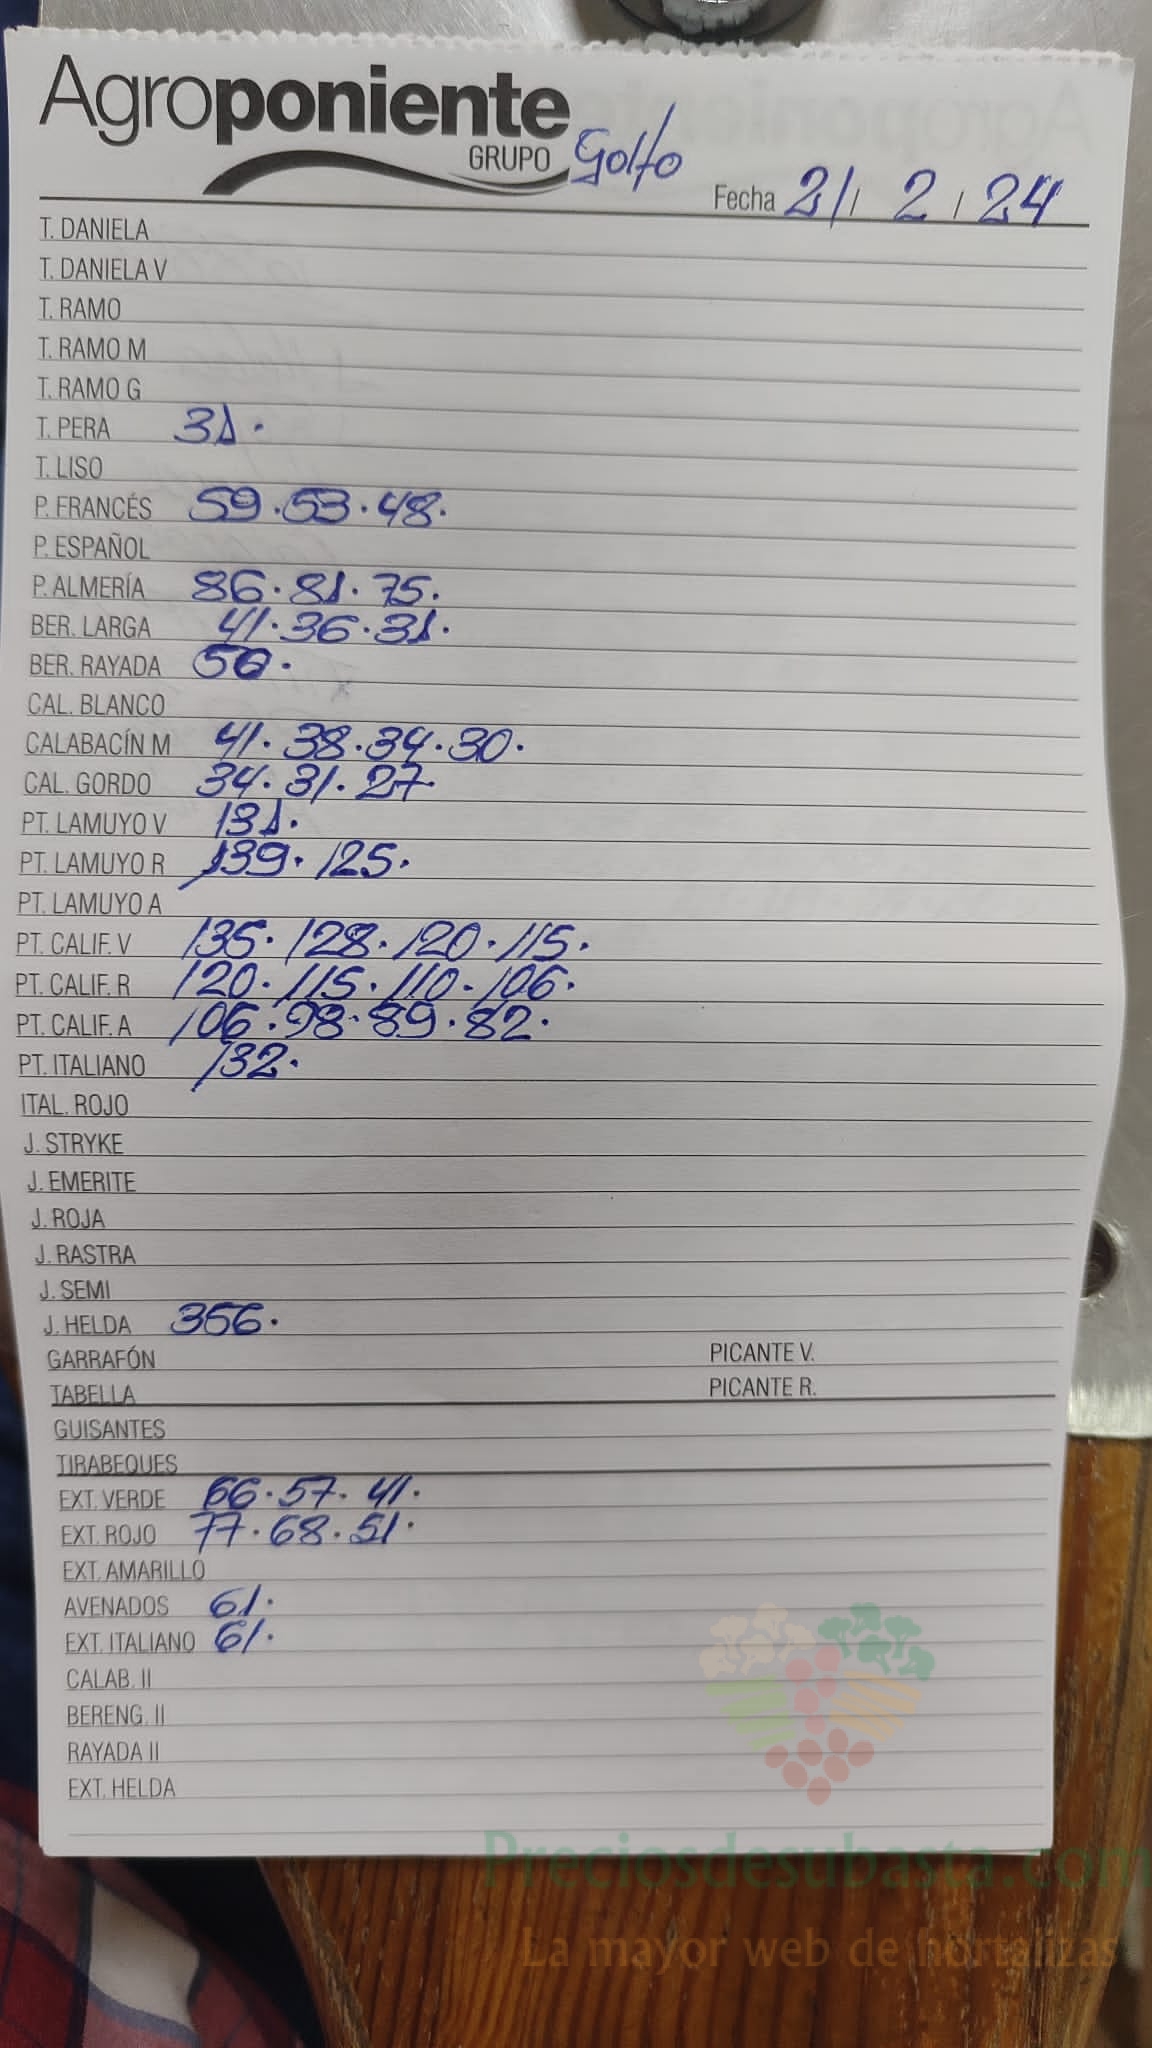 Agroponiente
GRUPO Golfo
Fecha 21 / 2 / 24
T. DANIELA
T. DANIELA V
T. RAMO
T. RAMO M
T. RAMO G
T. PERA 31.
T. LISO
P. FRANCÉS 59.53.48.
P. ESPAÑOL
P. ALMERÍA 86.81.75.
BER. LARGA 41.36.31.
BER. RAYADA 50.
CAL. BLANCO
CALABACÍN M 41.38.34.30.
CAL. GORDO 34.31.27.
PT. LAMUYO V 131.
PT. LAMUYO R 139.125.
PT. LAMUYO A
PT. CALIF. V 135.128.120.115.
PT. CALIF. R 120.115.110.106.
PT. CALIF. A 106.98.89.82.
PT. ITALIANO 132.
ITAL. ROJO
J. STRYKE
J. EMERITE
J. ROJA
J. RASTRA
J. SEMI
J. HELDA 356.
GARRAFÓN PICANTE V.
TABELLA PICANTE R.
GUISANTES
TIRABEQUES
EXT. VERDE 66.57.41.
EXT. ROJO 77.68.51.
EXT. AMARILLO
AVENADOS 61.
EXT. ITALIANO 61.
CALAB. II
BERENG. II
RAYADA II
EXT. HELDA
Preciosdesubasta.com
La mayor web de hortalizas